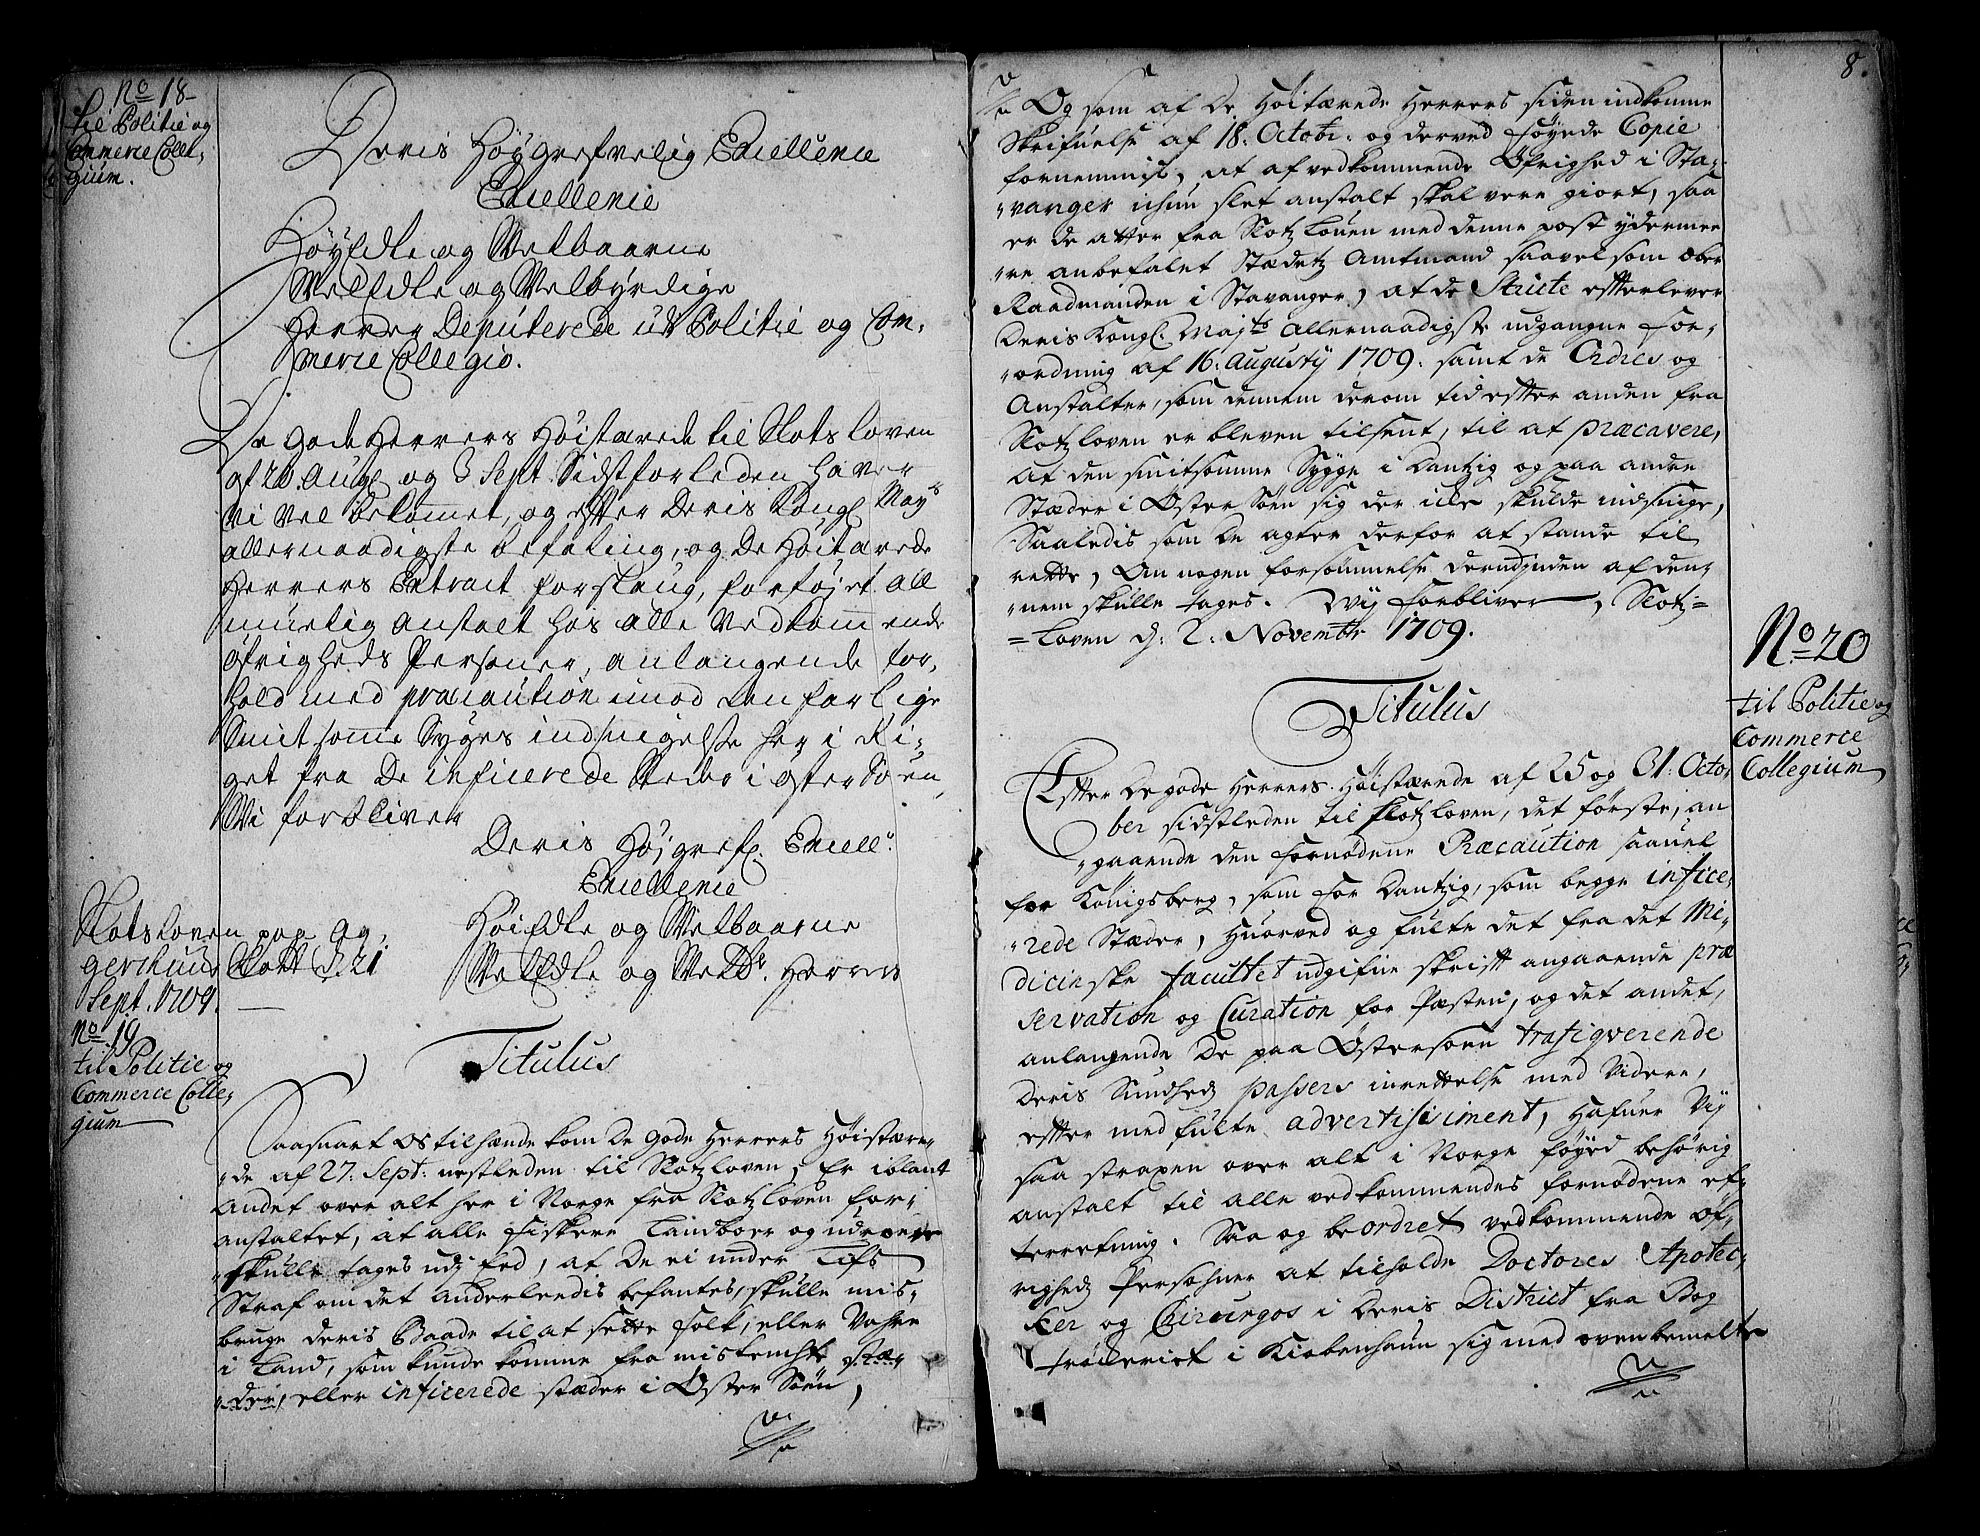 No 18
til Politie og
Commerce Colle,
gium.
Deris Höygrefvelig Excellence
Excellence
Höyædle og Welbaarne
Welædle og Welbyrdige
Herrer Deputerede udj Politie og Com,
merce Collegio.
De gode Herrers Höistærede til Slots Loven
af 20. Aug. og 3 Sept. Sidstforleden haver
Vi vel bekommet, og efter Deris Kongl. Mayts
allernaadigste befaling, og De Höitærede
Herrers Extract forslaug, forföjet all
muelig Anstalt hos alle Vedkommende
Øfrigheds Personer, anlangende for,
hold med præcaution imod den farlige
Smitsomme Syges indsnigelse her i Ri,
get fra De inficerede Steder i Øster Søen,
Wi forbliver
Deris Höjgrefl. Excell:
Excellence
Höiædle og Welbaarne
Welædle og Welb. Herrers
Slotsloven paa Ag,
gershuus Slott d. 21
Sept. 1709.
No 19
til Politie og
Commerce Colle,
gium
Titulus
Saasnart os tilhænde kom De gode Herrers Höistære,
de af 27. Sept: nestleden til Slotzloven, Er iblant
Andet over alt her i Norge fra Slotzloven for,
anstaltet, at alle fiskere Landboer og
skulle tages udj Eed, at De ei under Lifs
Straf om det Anderleedis befantes, skulle mis,
bruge deris Baade til at sette folk, eller Vahre
i Land, som kunde komme fra mistenchte stæ,
der, eller inficerede stæder i Øster Søen,
8.
Og som af De Höitærede Herrers siden indkomne
Skrifuelse af 18. Octobr: og derved föyede Copie
fornemmis, at af vedkommende Øfrighed i Sta,
vanger ichun slet anstalt skal vere giort, saa
er de atter fra Slotz Louen med denne post ydermee
re anbefalet Stædetz Amtmand saavelsom Ober
Raadmanden i Stavanger, at de Stricte efterlever
Deris Kongl: Majts Allernaadigste udgangne For,
ordning af 16. Augusty 1709. samt de Ordres og
Anstalter, som dennem derom tid efter anden fra
Slotzloven er bleven tilsent, til at præcavere,
At den smitsomme Syge i Dantzig og paa andre
Stæder i Øster Søen sig der icke skulde indsnige,
Saaledis som De agter derfor at stande til
rette, Om nogen forsömmelse derudjnden af den,
nem skulle tages. Wij forbliver, Slotz=
=Loven d: 2: Novembr 1709.
No 20
til Politie og
Commerce
Collegium
Titulus
Efter De gode Herrers Höistærede af 25 og 31. Octo,
ber sidstleden til Slotzloven, det første, an
gaaende den fornødene Præcaution saavel
for Königsberg, som for Dantzig, som begge infice,
rede Stæder, Huorved og fulte det fra det Me,
dicinske facultet udgifne skrift angaaende præ
servation og Curation for Pæsten, og det andet,
anlangende De paa Østersøen trafiqverende
Deris Sundheds passers inrettelse med Videre,
efter medfulte advertissiment, Hafuer Vij
saa straxen over alt i Norge föyed behörig
anstalt til alle vedkommendes fornødene ef,
terretning. Saa og beordret vedkommende Øf,
righeds Persohner at tilholde Doctores Apotec,
ker og Chirurgos i Deris District fra Bog
trökkeriet i Kiöbenhaun sig med ovenbemelte